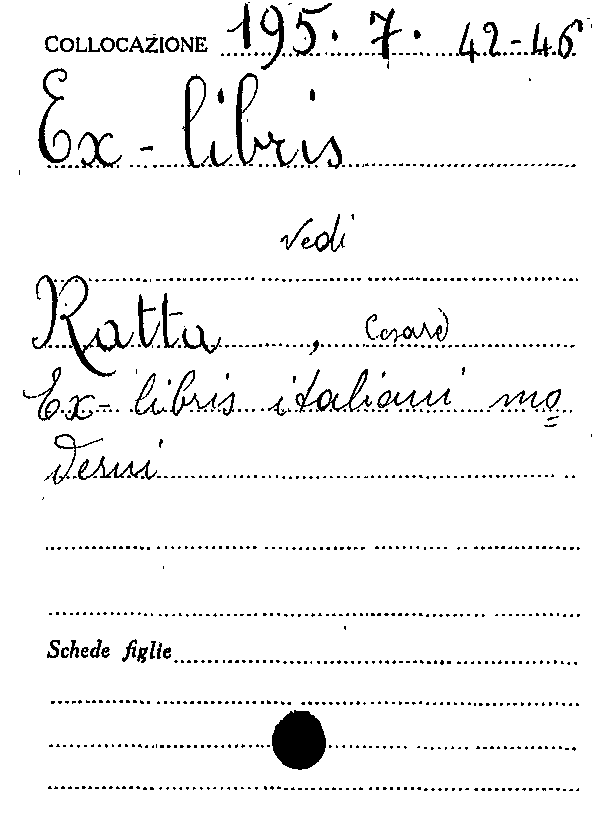 COLLOCAZIONE 195. 7. 42-46
Ex-libris
vedi
Ratta, Cesare
Ex-libris italiani mo=
derni
Schede figlie